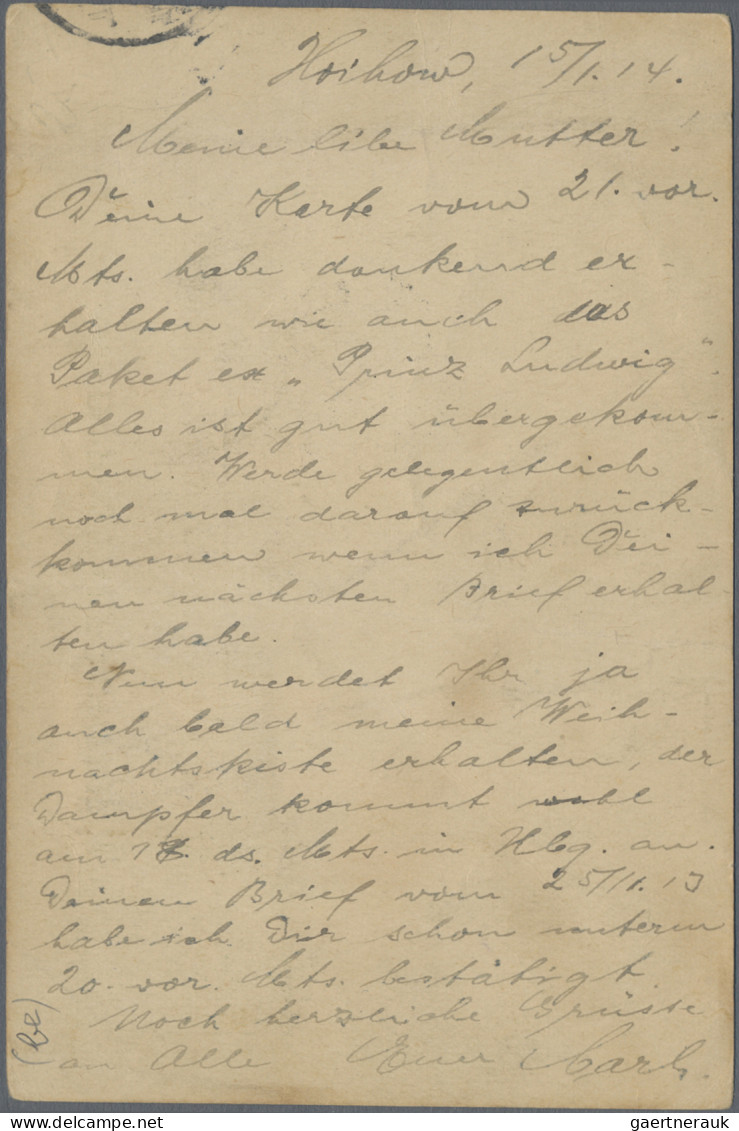 Hoihow, 15/1.14.
Meine libe Mutter!
Deine Karte vom 21. vor.
Mts. habe dankend er-
halten wie auch das
Paket ex „Prinz Ludwig".
Alles ist gut übergekom-
men. Werde gelegentlich
noch mal darauf zurück-
kommen wenn ich Dei-
nen nächsten Brief erhal-
ten habe.
Nun werdet Ihr ja
auch bald meine Weih-
nachtskiste erhalten, der
Dampfer kommt wohl
am ds. Mts. in Hbg. an.
Deinen Brief vom 25/11.13
habe ich Dir schon unterm
20. vor. Mts. bestätigt.
Noch herzliche Grüsse
an Alle Euer
(be)
delcampe.net
gaertnerauk